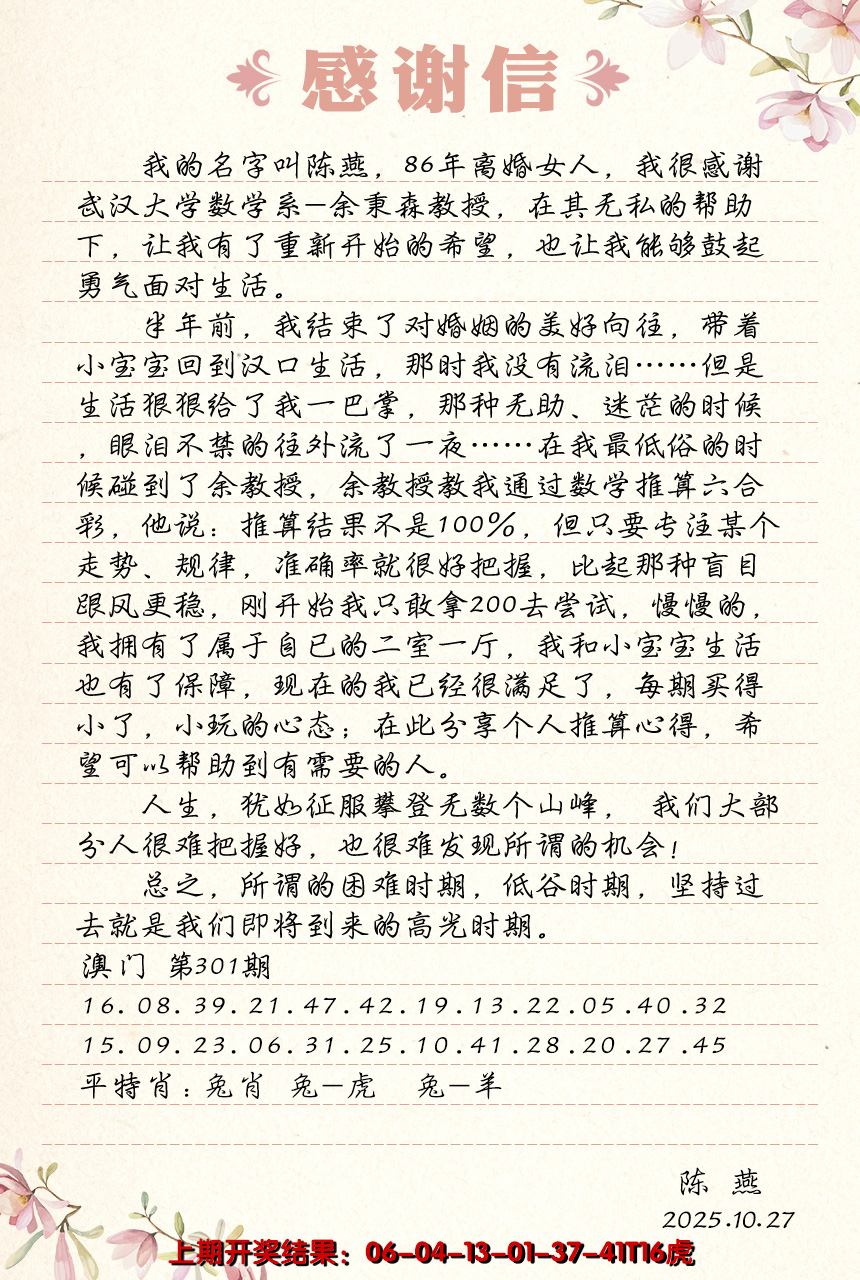 感谢信
我的名字叫陈燕，86年离婚女人，我很感谢
武汉大学数学系—余秉森教授，在其无私的帮助
下，让我有了重新开始的希望，也让我能够鼓起
勇气面对生活。
半年前，我结束了对婚姻的美好向往，带着
小宝宝回到汉口生活，那时我没有流泪……但是
生活狠狠给了我一巴掌，那种无助、迷茫的时候
，眼泪不禁的往外流了一夜……在我最低俗的时
候碰到了余教授，余教授教我通过数学推算六合
彩，他说：推算结果不是100%，但只要专注某个
走势、规律，准确率就很好把握，比起那种盲目
跟风更稳，刚开始我只敢拿200去尝试，慢慢的，
我拥有了属于自己的二室一厅，我和小宝宝生活
也有了保障，现在的我已经很满足了，每期买得
小了，小玩的心态；在此分享个人推算心得，希
望可以帮助到有需要的人。
人生，犹如征服攀登无数个山峰， 我们大部
分人很难把握好，也很难发现所谓的机会！
总之，所谓的困难时期，低谷时期，坚持过
去就是我们即将到来的高光时期。
澳门 第301期
16.08.39.21.47.42.19.13.22.05.40.32
15.09.23.06.31.25.10.41.28.20.27.45
平特肖：兔肖 兔—虎 兔—羊
陈 燕
2025.10.27
上期开奖结果：06-04-13-01-37-41T16虎